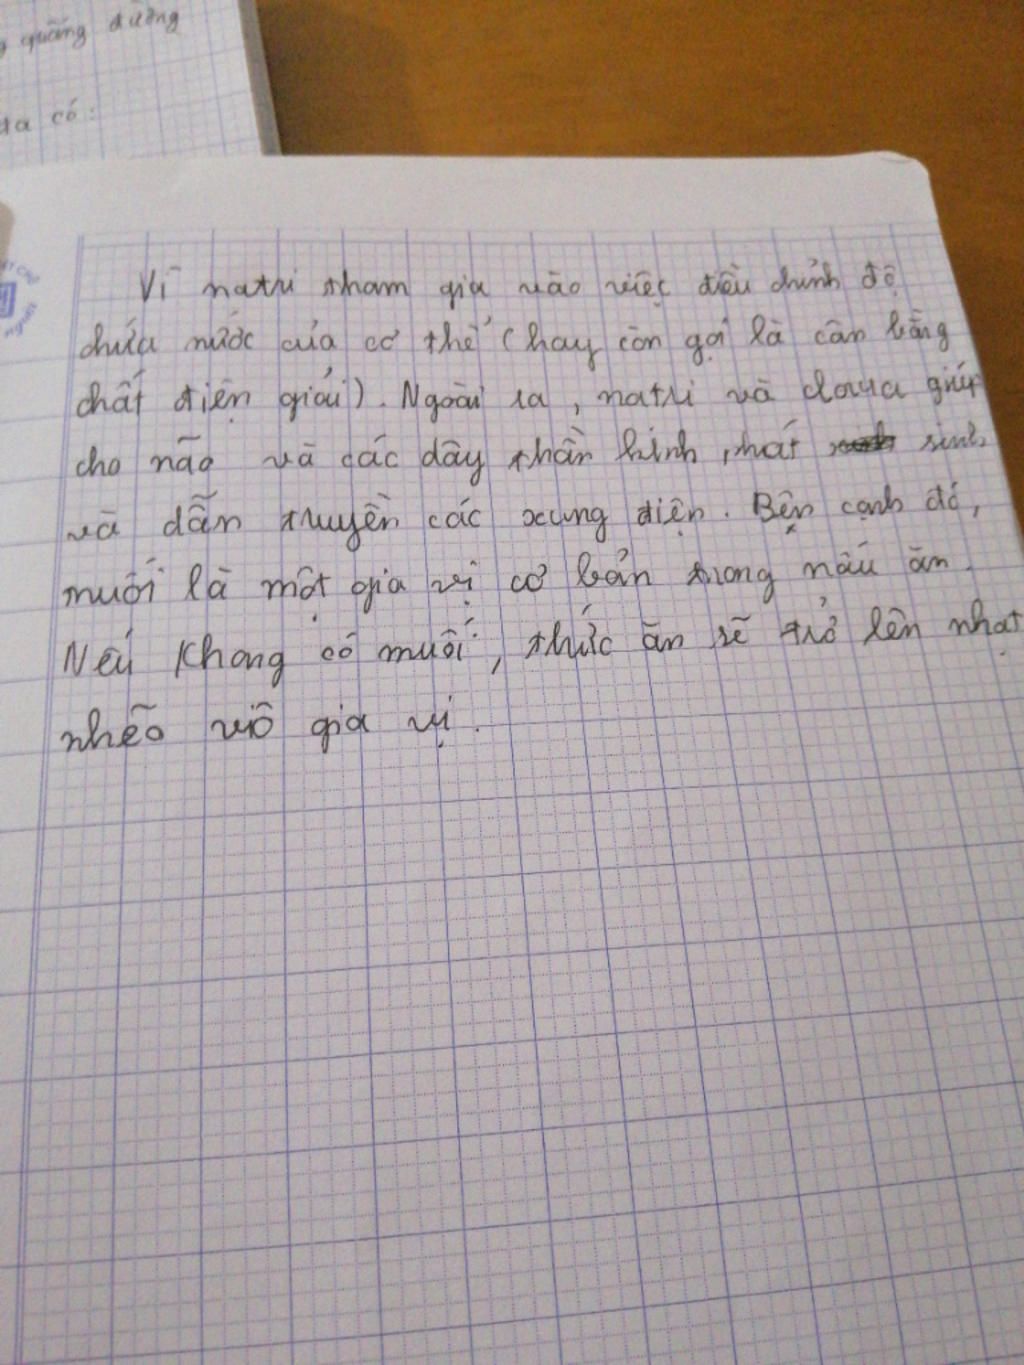 quãng đường
ta có:
Vì natri tham gia vào việc điều chỉnh độ
chứa nước của cơ thể (hay còn gọi là cân bằng
chất điện giải). Ngoài ra, natri và clorua giúp
cho não và các dây thần kinh phát sinh
và dẫn truyền các xung điện. Bên cạnh đó,
muối là một gia vị cơ bản trong nấu ăn.
Nếu không có muối, thức ăn sẽ trở lên nhạt
nhẽo vô gia vị.